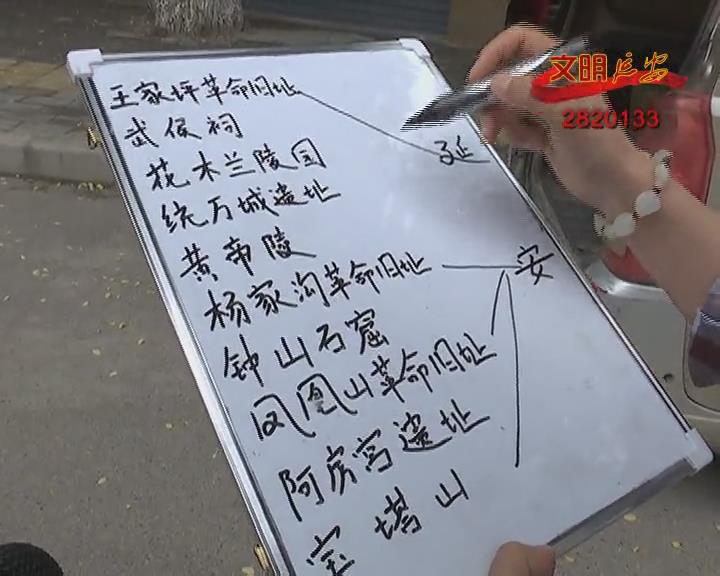 文明延安
2820133
王家坪革命旧址
武侯祠
延
花木兰陵园
统万城遗址
黄帝陵
杨家沟革命旧址
安
钟山石窟
凤凰山革命旧址
阿房宫遗址
宝塔山